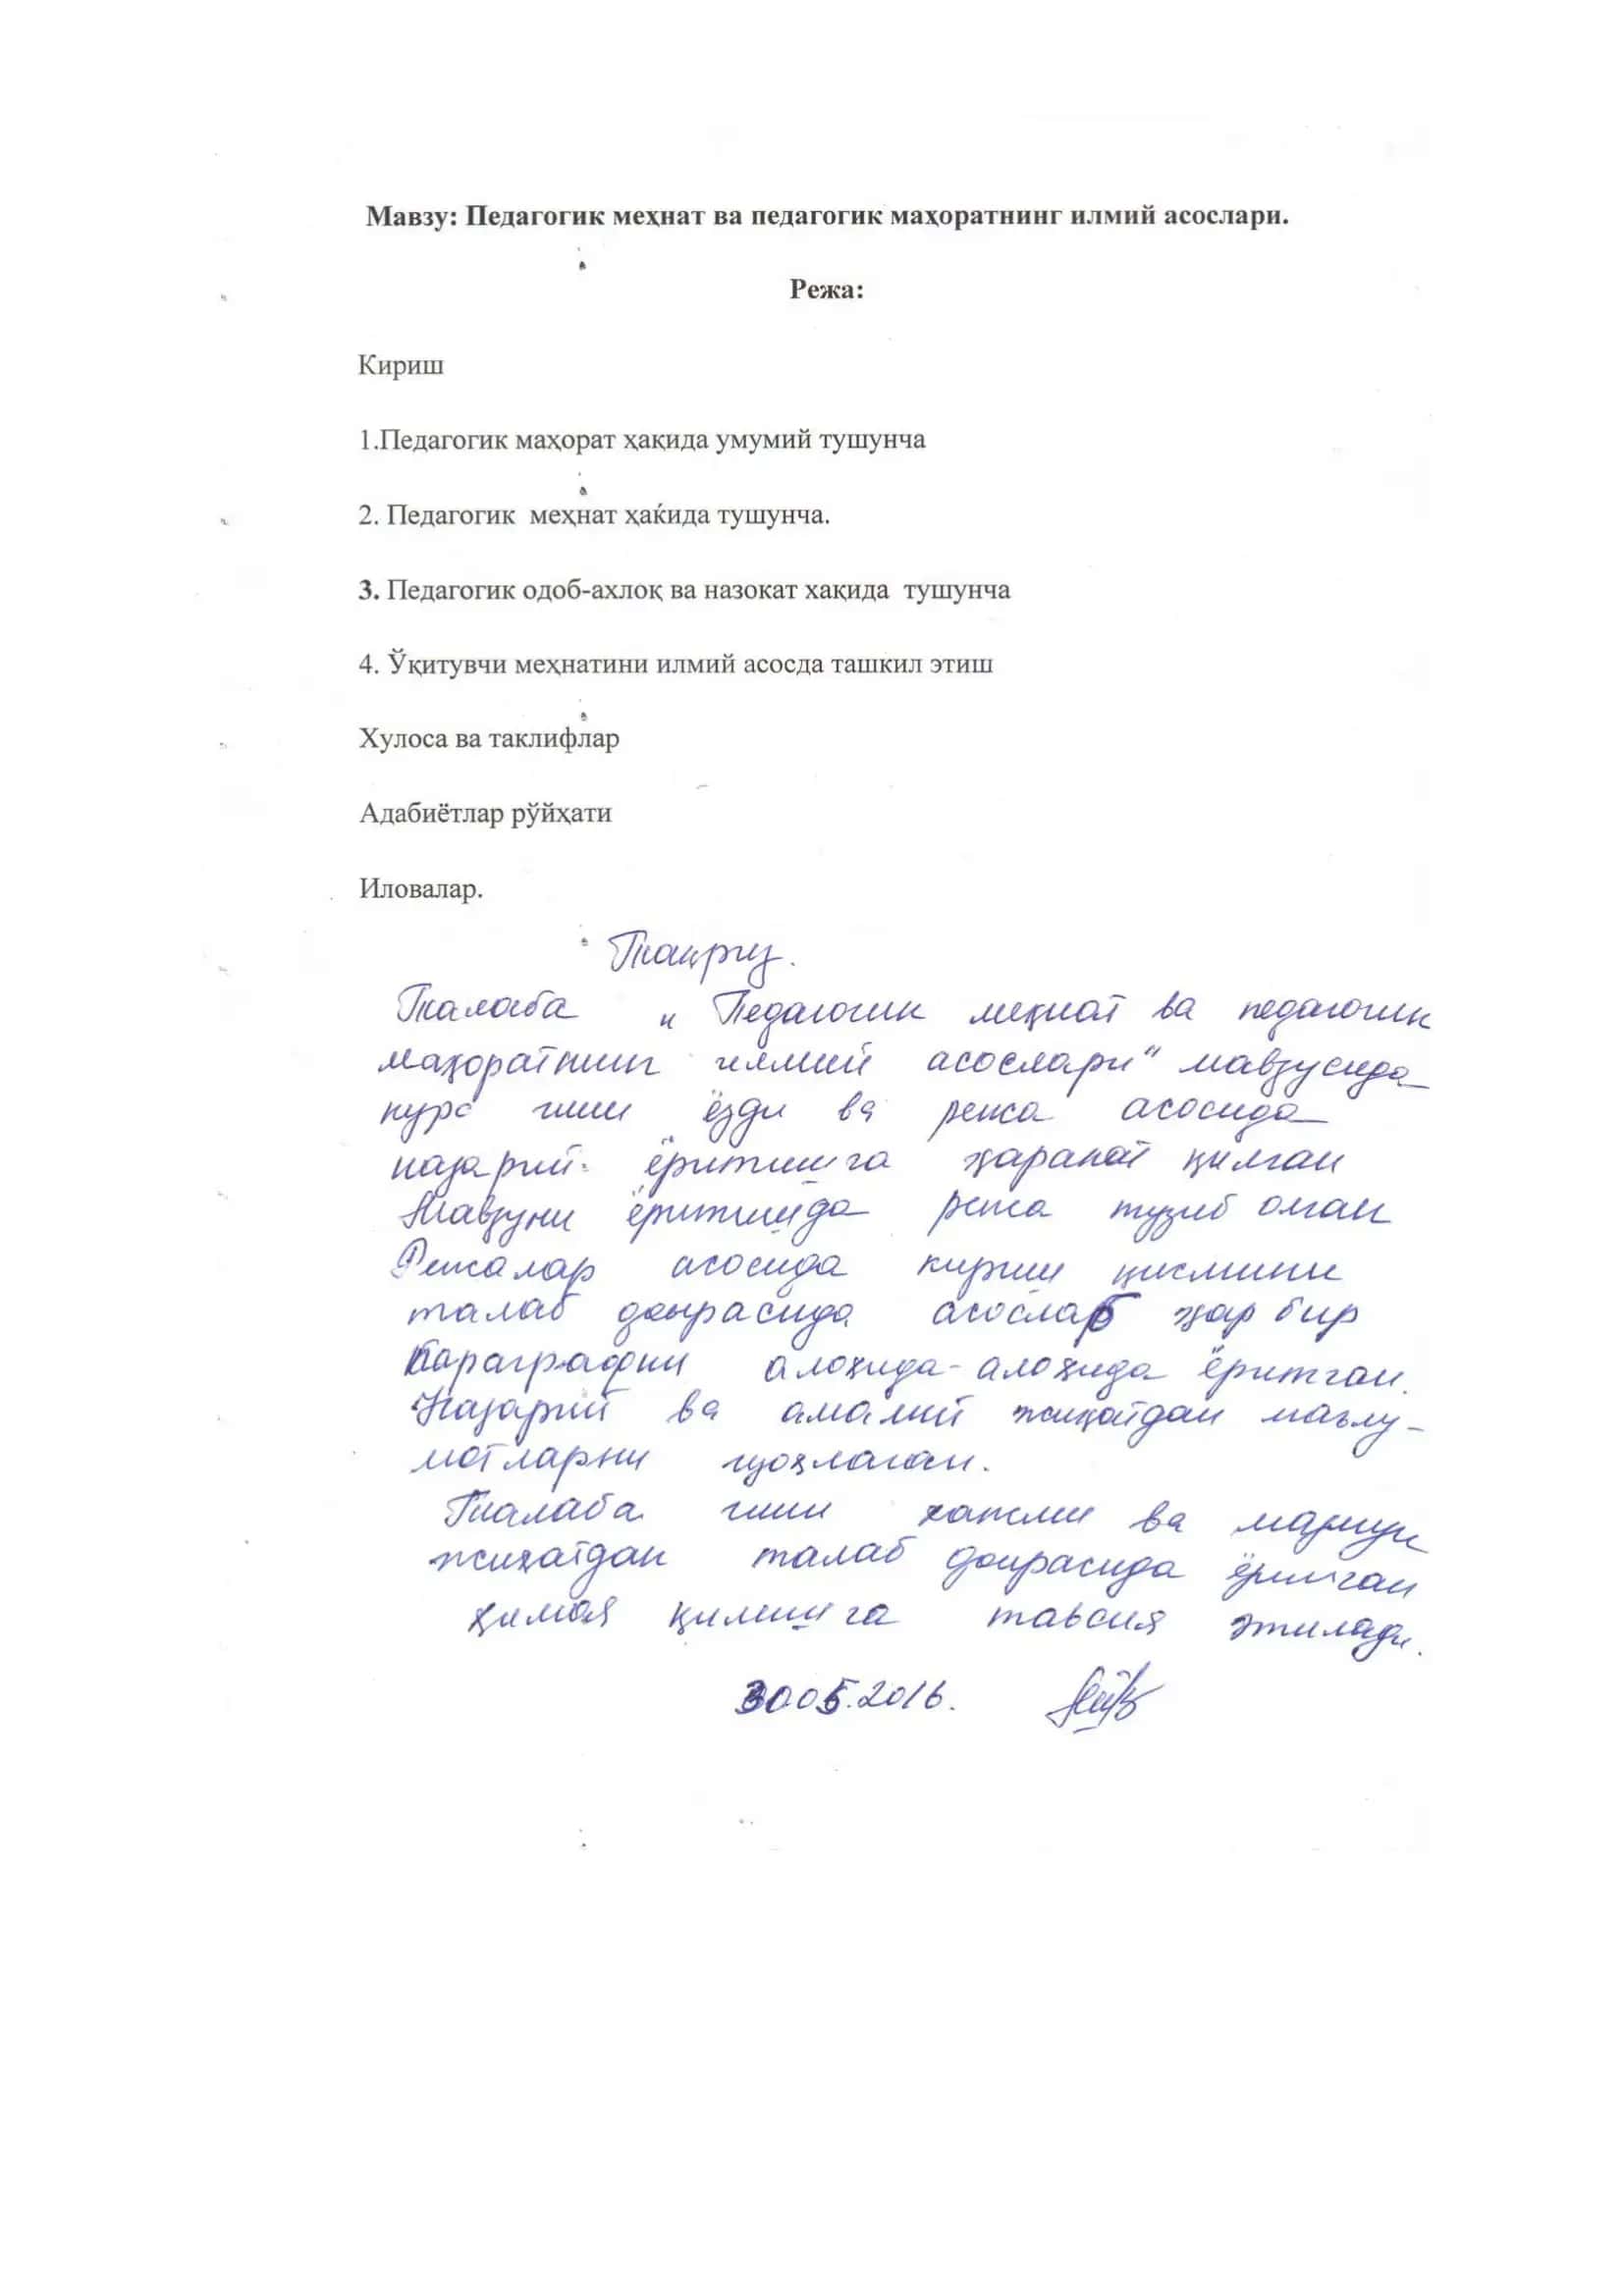 Мавзу: Педагогик меҳнат ва педагогик маҳоратнинг илмий асослари.
Режа:
Кириш
1.Педагогик маҳорат ҳақида умумий тушунча
2. Педагогик меҳнат ҳаќида тушунча.
3. Педагогик одоб-ахлоқ ва назокат хақида тушунча
4. Ўқитувчи меҳнатини илмий асосда ташкил этиш
Хулоса ва таклифлар
Адабиётлар рўйҳати
Иловалар.
Тақриз.
Талаба „Педагогик меҳнат ва педагогик
маҳоратнинг илмий асослари" мавзусида
курс иши ёзди ва режа асосида
назарий ёритишга ҳаракат қилган
Мавзуни ёритишда режа тузиб олган
Режалар асосида кириш қисмини
талаб доирасида асослаб ҳар бир
параграфни алоҳида-алоҳида ёритган.
Назарий ва амалий жиҳатдан маълу-
мотларни изоҳлаган.
Талаба иши хажми ва мазмун
жиҳатдан талаб доирасида ёритган
ҳимоя қилишга тавсия этилади.
30 05.2016.